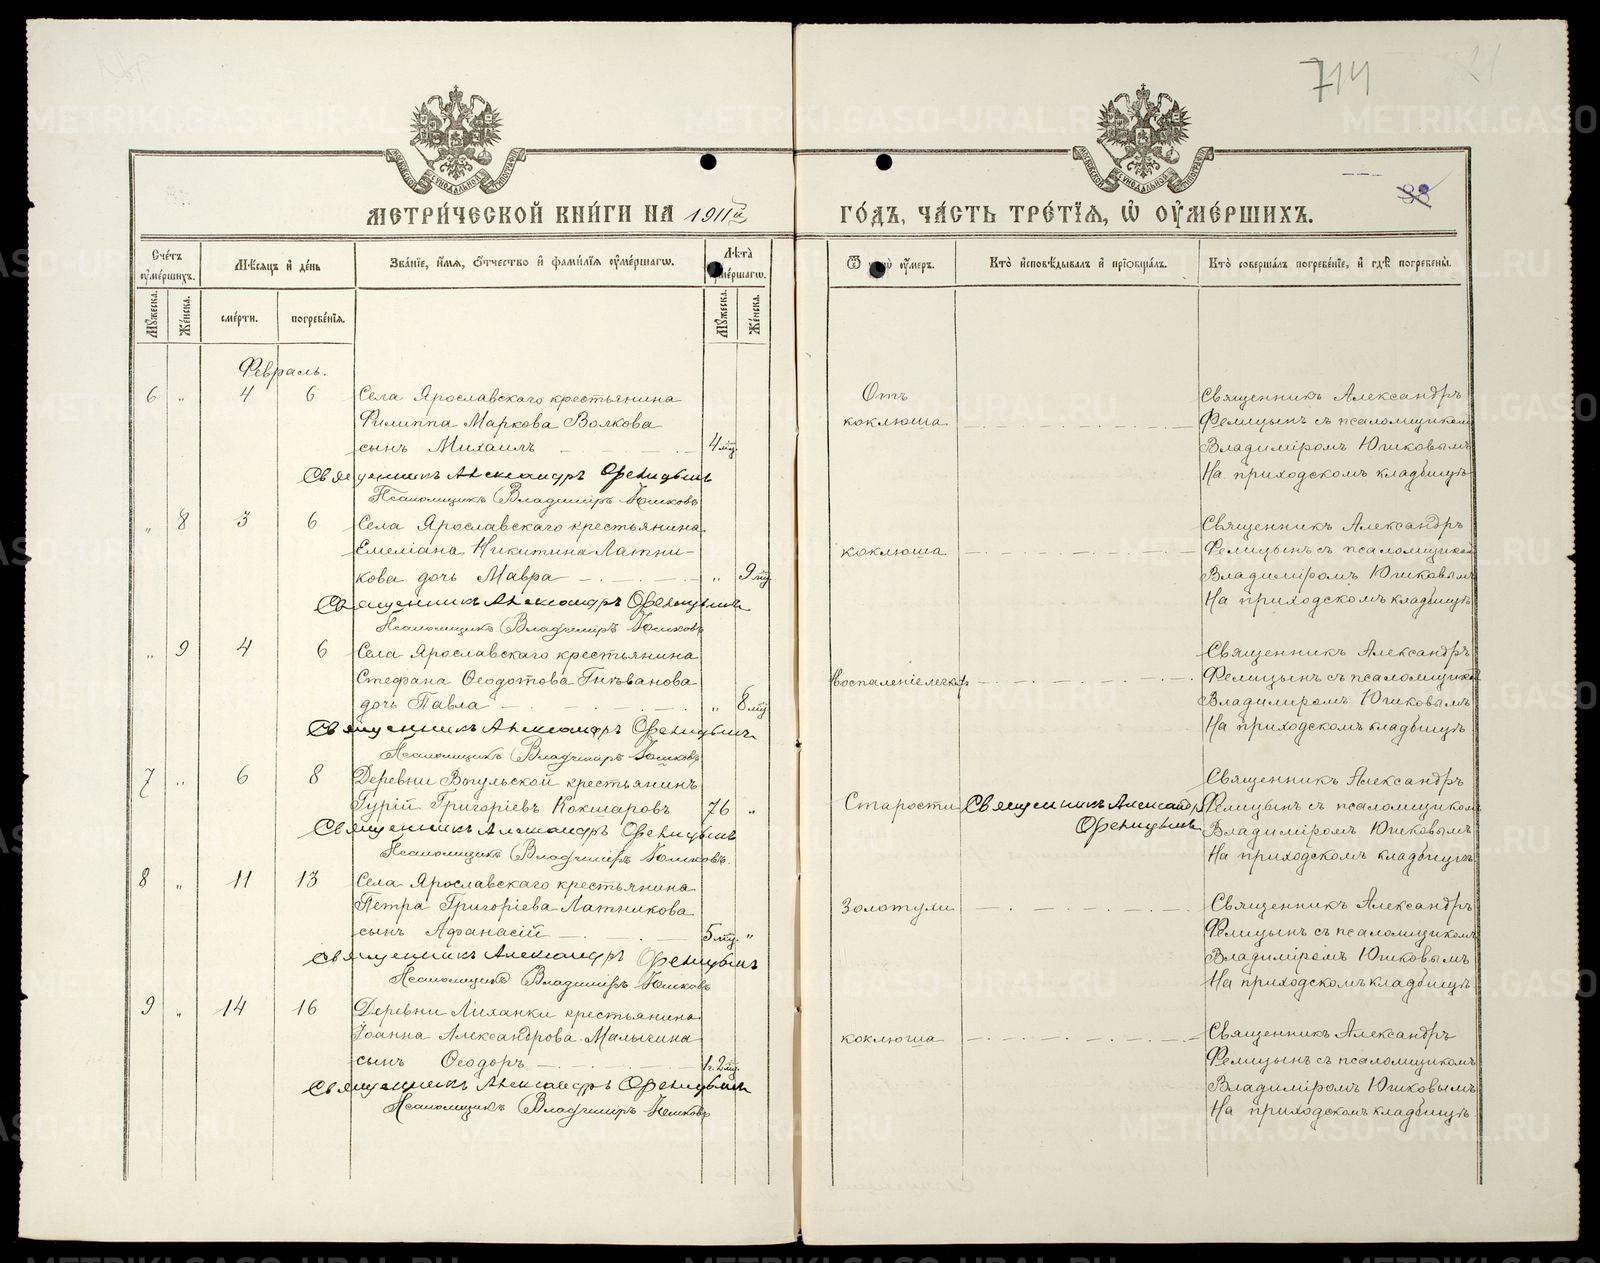 714
21
38
МЕТРИ́ЧЕСКОЙ КНИ́ГИ НА 1911й ГО́ДЪ, ЧА́СТЬ ТРЕ́ТЇѦ, Ѡ҆ ОУ҆МЕ́РШИХЪ.
Сче́тъ оу҆ме́ршихъ.
Мꙋ́жеска.
Же́нска.
Мѣ́сѧцъ и҆ де́нь
сме́рти.
погребе́нїѧ.
Зва́нїе, и҆́мѧ, о҆́тчество и҆ фами́лїѧ оу҆ме́ршагѡ.
Лѣ́та оу҆ме́ршагѡ.
Мꙋ́жеска.
Же́нска.
Ѿ оу҆́меръ.
Кто̀ и҆сповѣ́дывалъ и҆ прїѻбща́лъ.
Кто̀ соверша́лъ погребе́нїе, и҆ гдѣ̀ погребены̀.
Февраль.
6 „ 4 6 Села Ярославскаго крестьянина
Филиппа Маркова Волкова
сынъ Михаилъ 4 мц.
Священникъ Александръ Фелицынъ
Псаломщикъ Владиміръ Юшковъ
Отъ
коклюша
Священникъ Александръ
Фелицынъ съ псаломщикомъ
Владиміромъ Юшковымъ
На приходскомъ кладбищѣ
„ 8 3 6 Села Ярославскаго крестьянина
Емеліана Никитина Латни-
кова дочь Мавра „ 9 мц
Священникъ Александръ Фелицынъ
Псаломщикъ Владиміръ Юшковъ
коклюша
Священникъ Александръ
Фелицынъ съ псаломщикомъ
Владиміромъ Юшковымъ
На приходскомъ кладбищѣ
„ 9 4 6 Села Ярославскаго крестьянина
Стефана Ѳеодотова
дочь Павла „ 8 мц
Священникъ Александръ Фелицынъ
Псаломщикъ Владиміръ Юшковъ
Воспаленіе легкихъ
Священникъ Александръ
Фелицынъ съ псаломщикомъ
Владиміромъ Юшковымъ
На приходскомъ кладбищѣ
7 „ 6 8 Деревни Вогульской крестьянинъ
Гурій Григоріевъ Кокшаровъ 76 „
Священникъ Александръ Фелицынъ
Псаломщикъ Владиміръ Юшковъ.
Старости
Священникъ Александръ
Фелицынъ
Священникъ Александръ
Фелицынъ съ псаломщикомъ
Владиміромъ Юшковымъ
На приходскомъ кладбищѣ
8 „ 11 13 Села Ярославскаго крестьянина
Петра Григоріева Латникова
сынъ Афанасій 5 мц. „
Священникъ Александръ Фелицынъ
Псаломщикъ Владиміръ Юшковъ
Золотухи
Священникъ Александръ
Фелицынъ съ псаломщикомъ
Владиміромъ Юшковымъ
На приходскомъ кладбищѣ
9 „ 14 16 Деревни Лиханки крестьянина
Іоанна Александрова Малыгина
сынъ Ѳеодоръ 1 г. 2 мц.
Священникъ Александръ Фелицынъ
Псаломщикъ Владиміръ Юшковъ
коклюша
Священникъ Александръ
Фелицынъ съ псаломщикомъ
Владиміромъ Юшковымъ
На приходскомъ кладбищѣ
METRIKI.GASO-URAL.RU